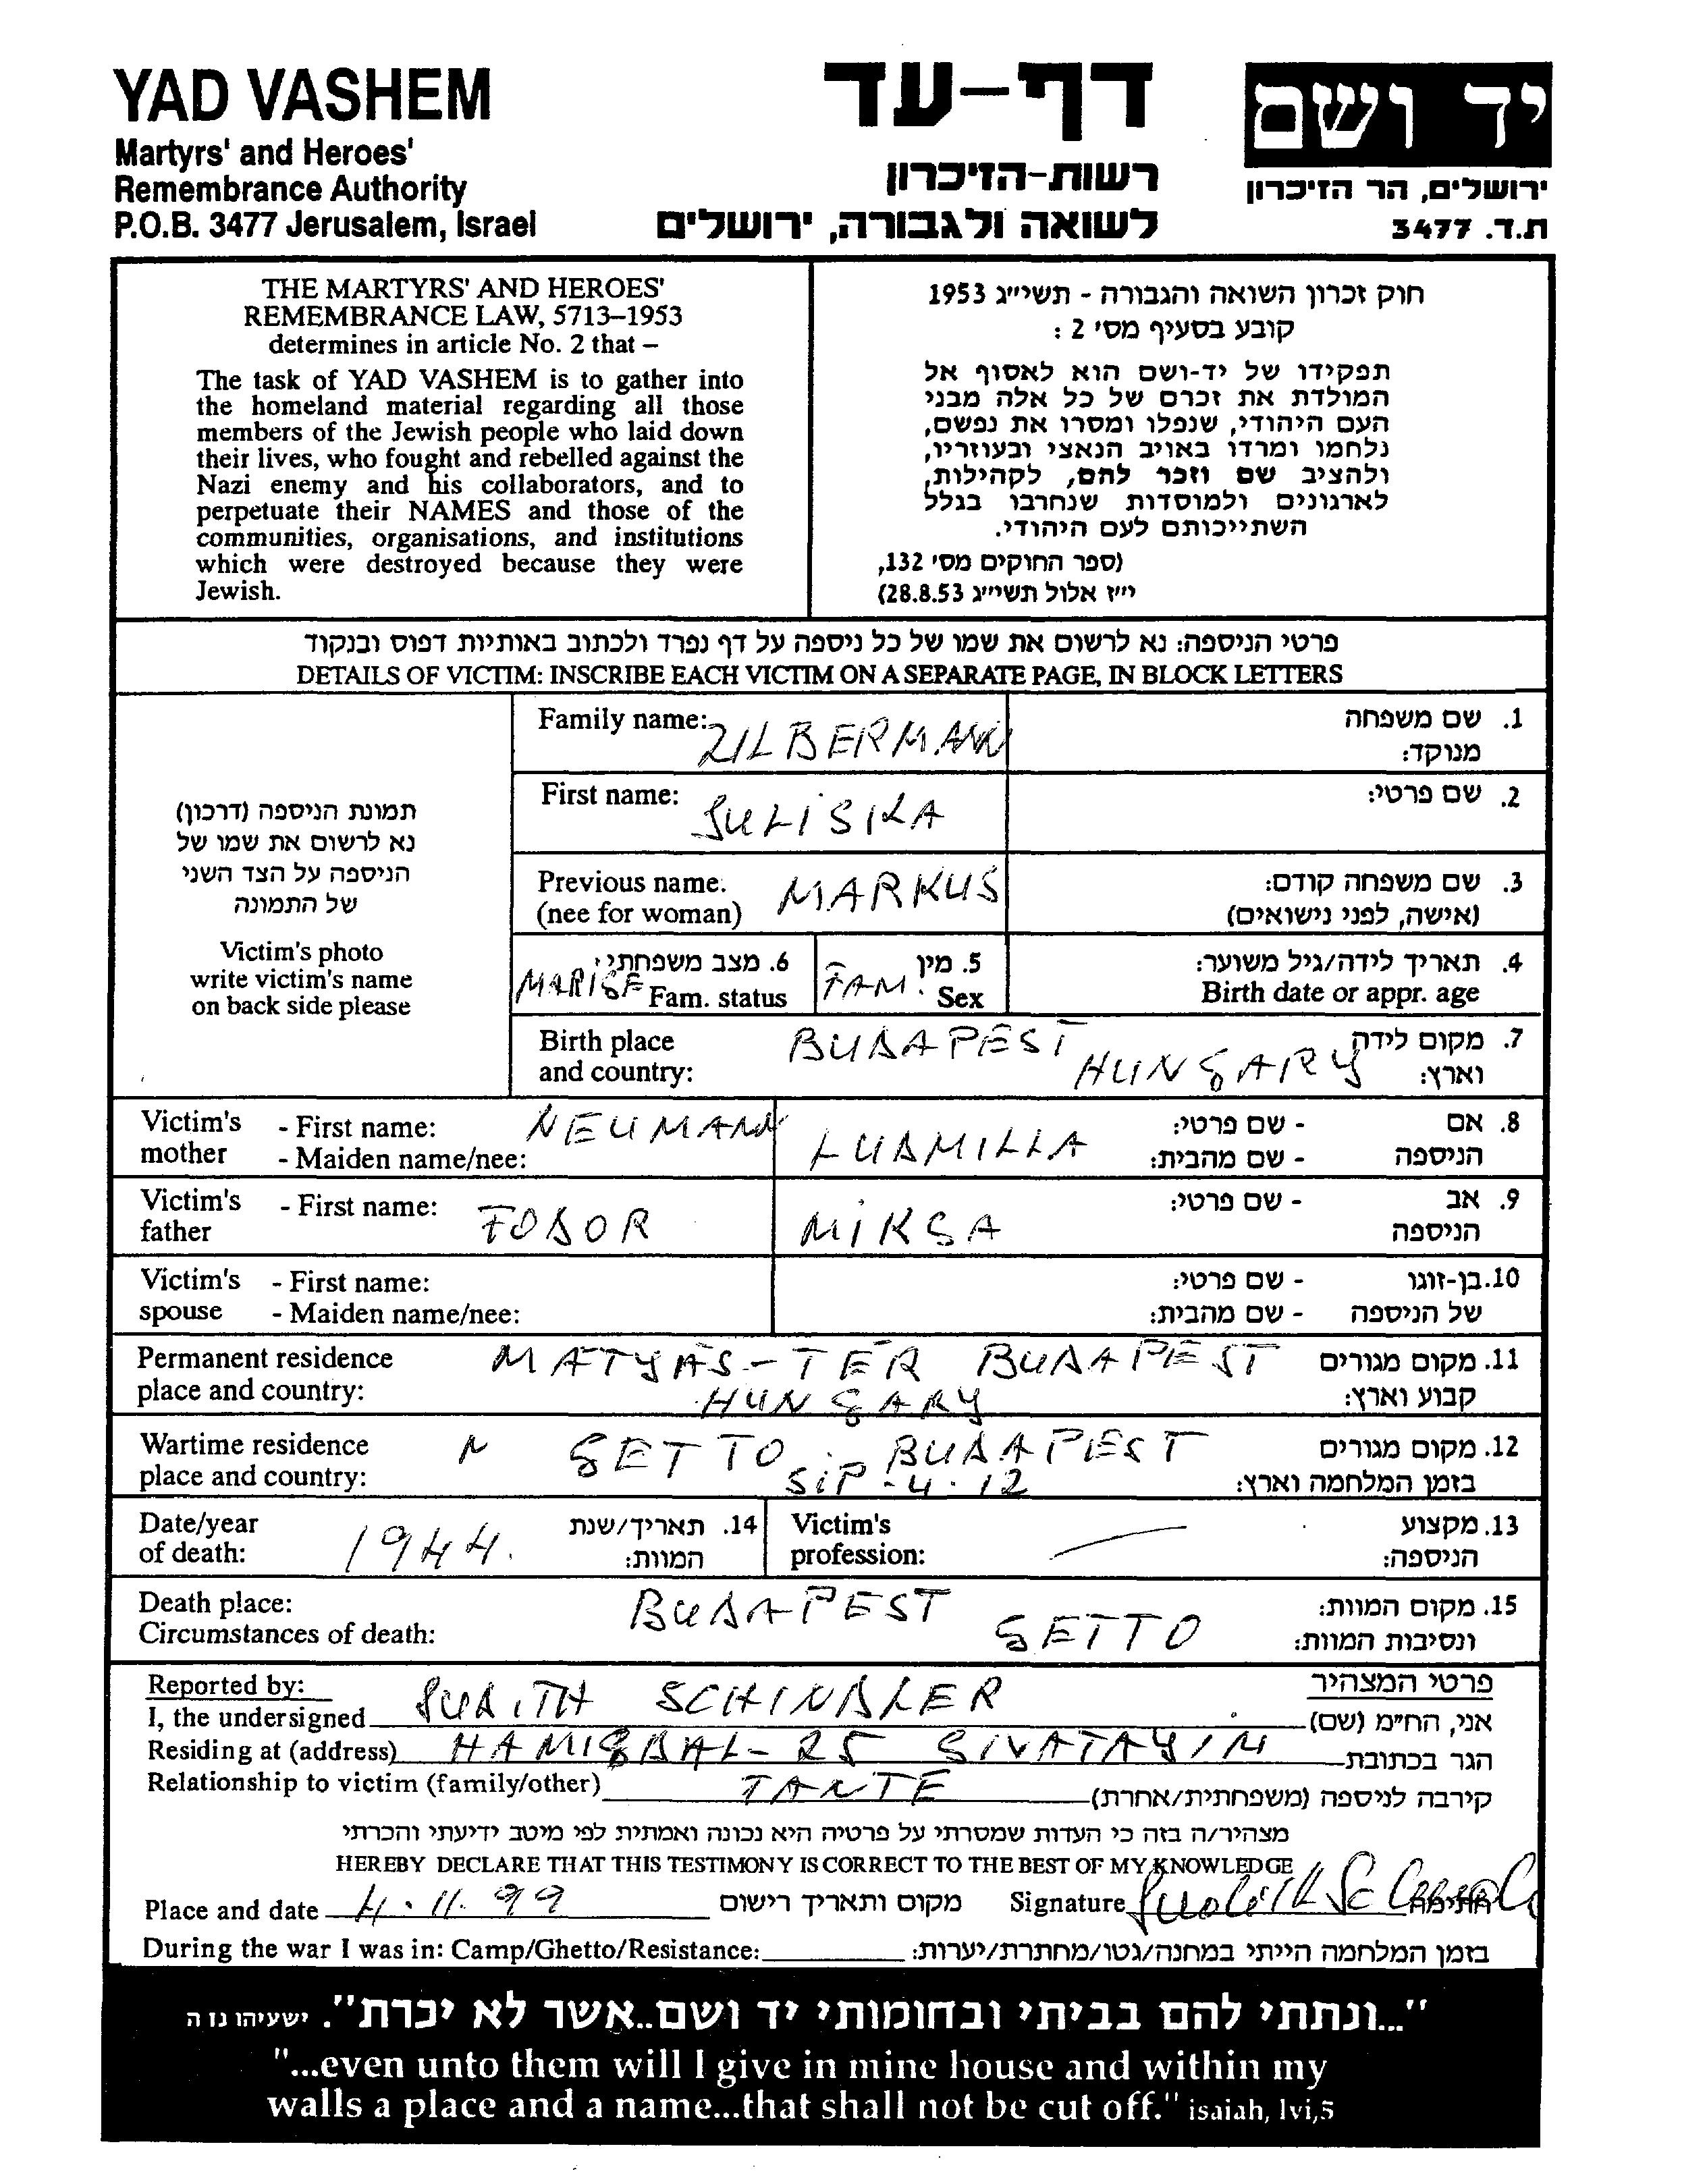 YAD VASHEM
Martyrs' and Heroes'
Remembrance Authority
P.O.B. 3477 Jerusalem, Israel
דף-עד
רשות-הזיכרון
לשואה ולגבורה, ירושלים
יד ושם
ירושלים, הר הזיכרון
ת.ד. 3477
THE MARTYRS' AND HEROES'
REMEMBRANCE LAW, 5713–1953
determines in article No. 2 that –
The task of YAD VASHEM is to gather into
the homeland material regarding all those
members of the Jewish people who laid down
their lives, who fought and rebelled against the
Nazi enemy and his collaborators, and to
perpetuate their NAMES and those of the
communities, organisations, and institutions
which were destroyed because they were
Jewish.
חוק זכרון השואה והגבורה - תשי״ג 1953
קובע בסעיף מס׳ 2 :
תפקידו של יד-ושם הוא לאסוף אל
המולדת את זכרם של כל אלה מבני
העם היהודי, שנפלו ומסרו את נפשם,
נלחמו ומרדו באויב הנאצי ובעוזריו,
ולהציב שם וזכר להם, לקהילות,
לארגונים ולמוסדות שנחרבו בגלל
השתייכותם לעם היהודי.
(ספר החוקים מס׳ 132,
י״ז אלול תשי״ג 28.8.53)
פרטי הניספה: נא לרשום את שמו של כל ניספה על דף נפרד ולכתוב באותיות דפוס ובנקוד
DETAILS OF VICTIM: INSCRIBE EACH VICTIM ON A SEPARATE PAGE, IN BLOCK LETTERS
תמונת הניספה (דרכון)
נא לרשום את שמו של
הניספה על הצד השני
של התמונה
Victim's photo
write victim's name
on back side please
Family name: ZILBERMANN 1. שם משפחה
מנוקד:
First name: JULISKA 2. שם פרטי:
Previous name: MARKUS 3. שם משפחה קודם:
(nee for woman) (אישה, לפני נישואים)
6. מצב משפחתי 5. מין 4. תאריך לידה/גיל משוער:
Fam. status FAM. Sex Birth date or appr. age
Birth place BUDAPEST 7. מקום לידה
and country: HUNGARY וארץ:
Victim's - First name: NEUMANN - שם פרטי: 8. אם
mother - Maiden name/nee: LUDMILLA - שם מהבית: הניספה
Victim's - First name: - שם פרטי: 9. אב
father FODOR MIKSA הניספה
Victim's - First name: - שם פרטי: 10. בן-זוגו
spouse - Maiden name/nee: - שם מהבית: של הניספה
Permanent residence MATYÁS-TÉR BUDAPEST 11. מקום מגורים
place and country: HUNGARY קבוע וארץ:
Wartime residence GETTO. BUDAPEST 12. מקום מגורים
place and country: SIP-4.12 בזמן המלחמה וארץ:
Date/year 14. תאריך/שנת Victim's 13. מקצוע
of death: 1944. המוות: profession: הניספה:
Death place: BUDAPEST 15. מקום המוות:
Circumstances of death: GETTO ונסיבות המוות:
Reported by: פרטי המצהיר
I, the undersigned JUDITH SCHINDLER אני, הח״מ (שם)
Residing at (address) HAMIGDAL-25 GIVATAYIM הגר בכתובת
Relationship to victim (family/other) TANTE קירבה לניספה (משפחתית/אחרת)
מצהיר/ה בזה כי העדות שמסרתי על פרטיה היא נכונה ואמתית לפי מיטב ידיעתי והכרתי
HEREBY DECLARE THAT THIS TESTIMONY IS CORRECT TO THE BEST OF MY KNOWLEDGE
Place and date 4.11.99 מקום ותאריך רישום Signature חתימה
During the war I was in: Camp/Ghetto/Resistance: בזמן המלחמה הייתי במחנה/גטו/מחתרת/יערות:
"...ונתתי להם בביתי ובחומותי יד ושם..אשר לא יכרת". ישעיהו נז ה
"...even unto them will I give in mine house and within my
walls a place and a name...that shall not be cut off." isaiah, lvi,5